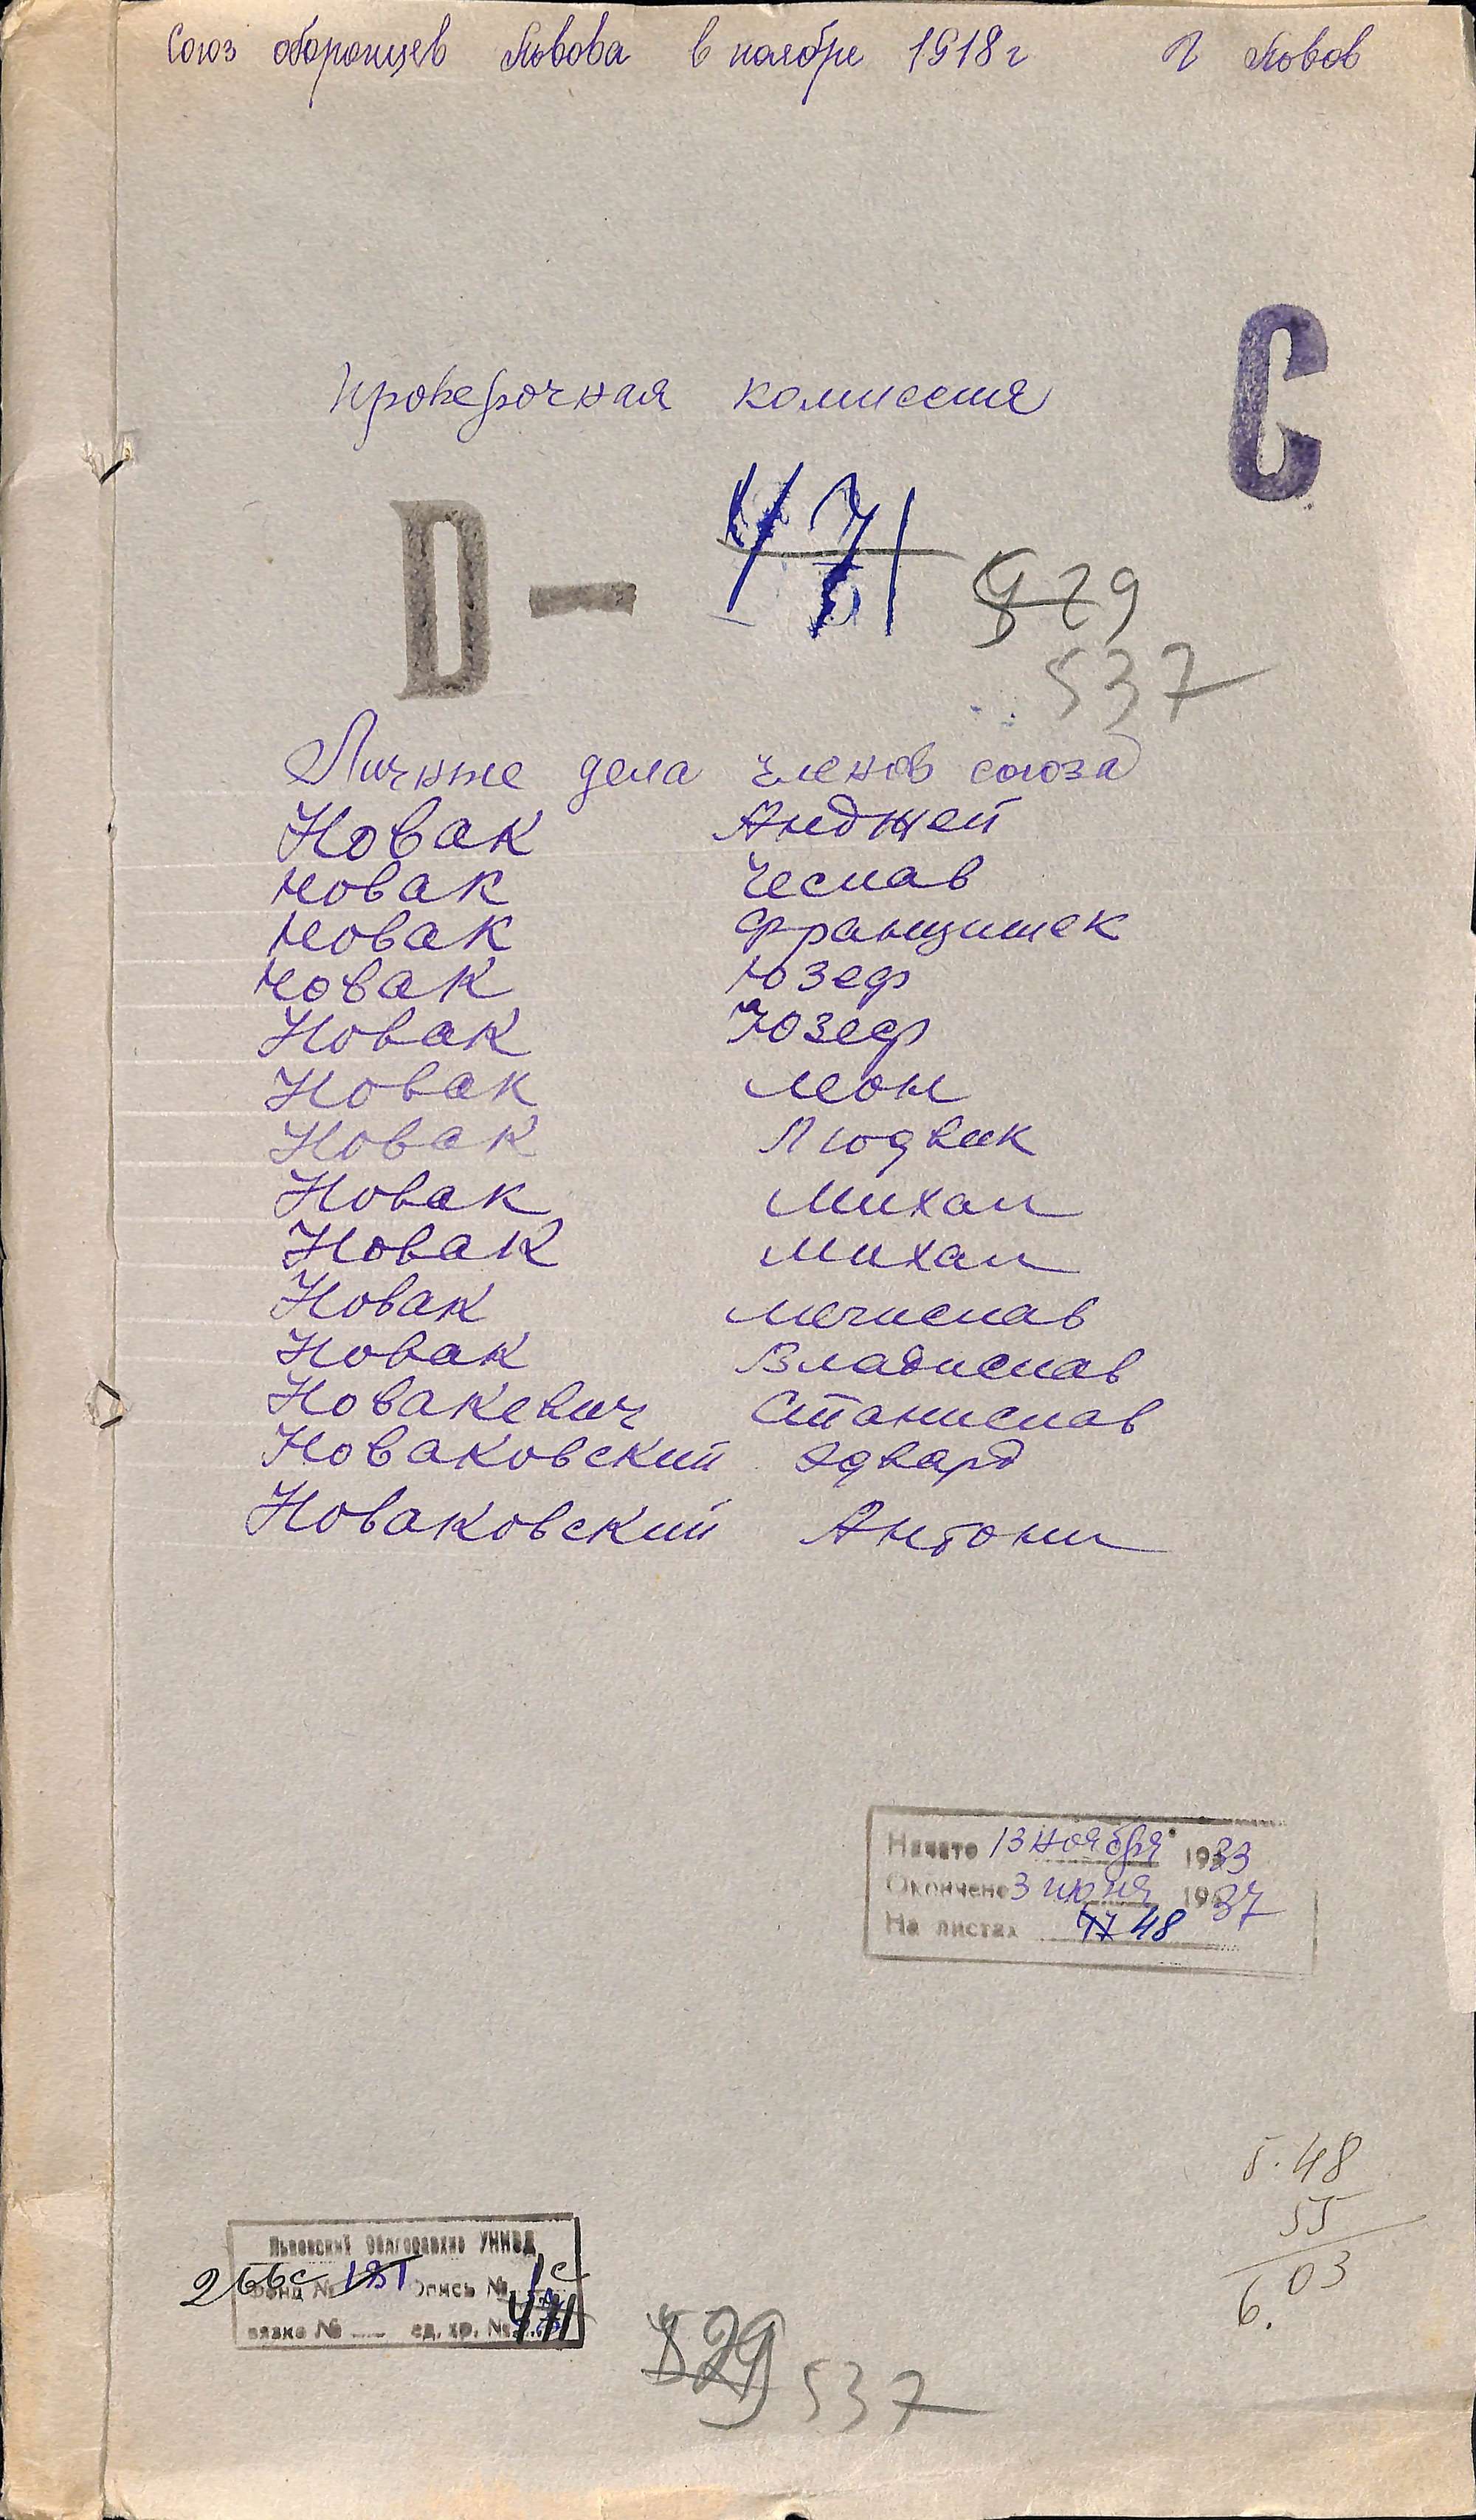 Союз оборонцев Львова в ноябре 1918 г г Львов
С
Проверочная комиссия
D — 471
529
537
Личные дела членов союза
Новак Анджей
Новак Чеслав
Новак Францишек
Новак Юзеф
Новак Юзеф
Новак Леон
Новак Людвик
Новак Михал
Новак Михал
Новак Мечислав
Новак Владислав
Новакевич Станислав
Новаковский Эдвард
Новаковский Антони
Начато 13 ноября 1933
Окончено 3 июня 1937
На листах 47 48
5.48
55
6.03
Львовский Облгосархив УНКВД
266с Фонд № 131 Опись № 1с
вязка № — ед. хр. № 471
529 537